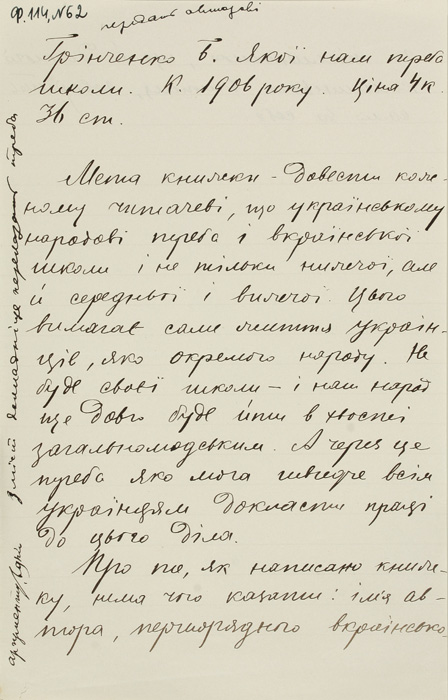 Ф. 114, №62
передати авторові
Грінченко Б. Якої нам треба
школи. К. 1906 року. Ціна 4 к.
36 ст.
Мета книжки - довести кож-
ному читачеві, що українському
народові треба і вкраїнської
школи і не тільки нижчої, але
й середньої і вищої. Цього
вимагає саме життя україн-
ців, яко окремого народу. Не
буде своєї школи — і наш народ
ще довго буде йти в хвості
загальнолюдським. А через це
треба яко мога швидче всім
українцям докласти праці
до цього діла.
Про те, як написано книж-
ку, нема чого казати: імя ав-
тора, першорядного вкраїнсько
Зміст докладніще переказати треба
аргументи